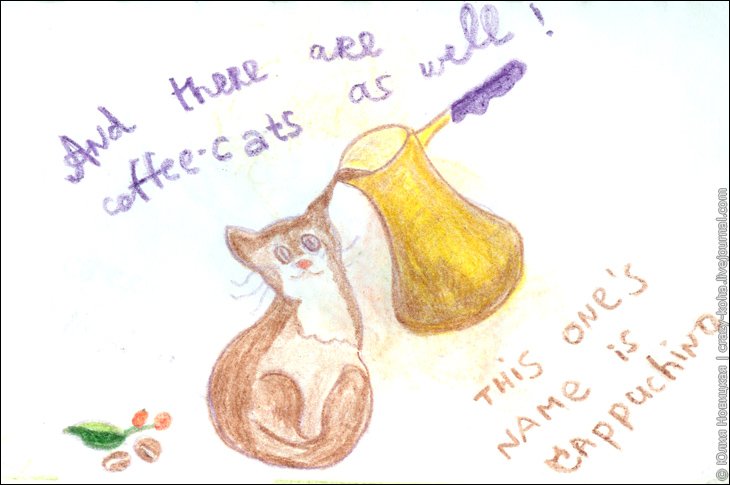 And there are
coffee-cats as well!
THIS ONE'S
NAME is
CAPPUCHINO
© Юлия Новицкая | crazy-koha.livejournal.com